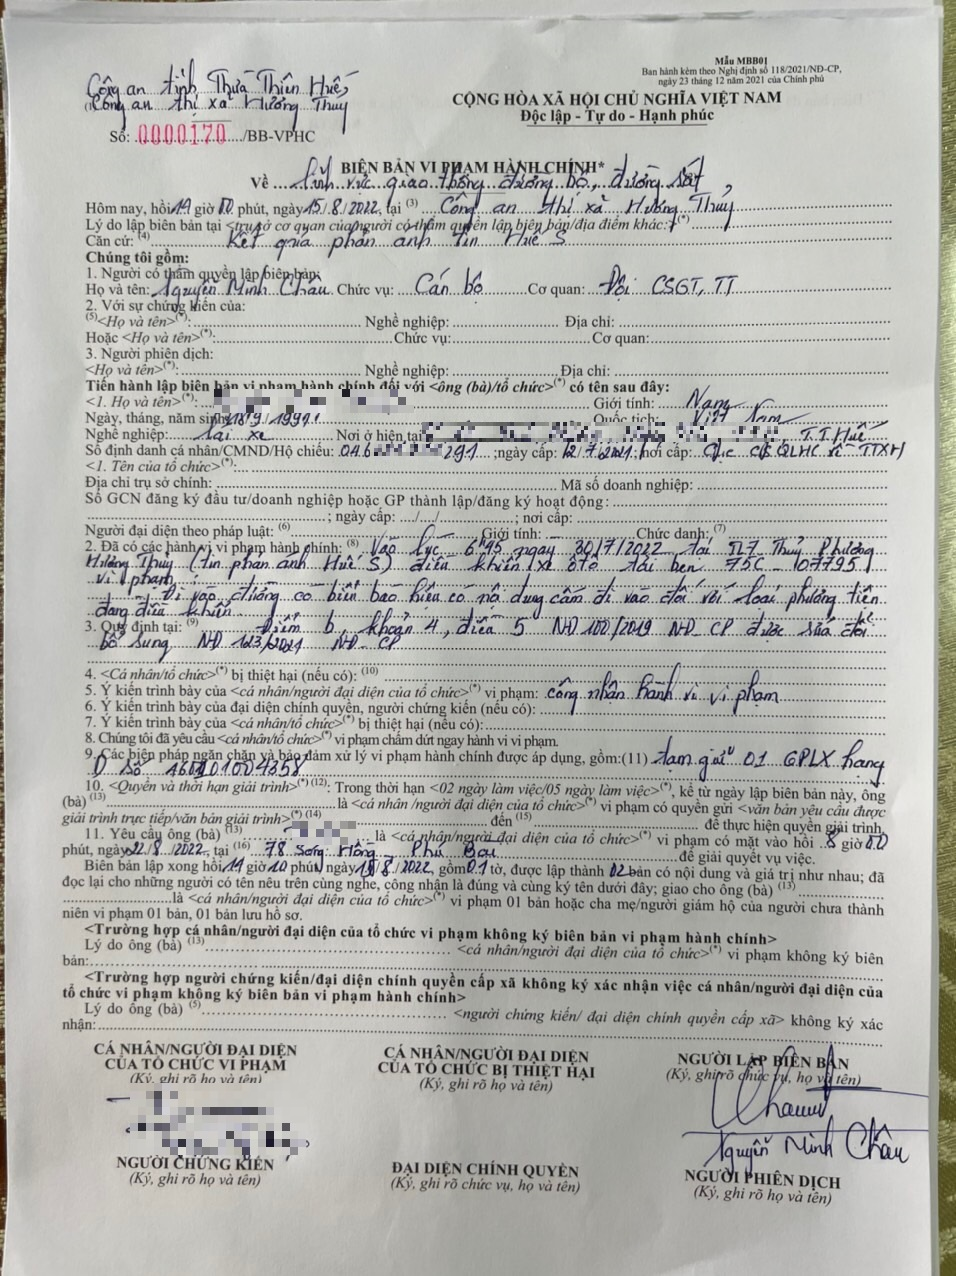 Mẫu MBB01
Ban hành kèm theo Nghị định số 118/2021/NĐ-CP,
ngày 23 tháng 12 năm 2021 của Chính phủ
Công an tỉnh Thừa Thiên Huế
(1)Công an thị xã Hương Thủy
CỘNG HÒA XÃ HỘI CHỦ NGHĨA VIỆT NAM
Độc lập - Tự do - Hạnh phúc
Số: 0000170 /BB-VPHC
BIÊN BẢN VI PHẠM HÀNH CHÍNH*
Về lĩnh vực giao thông đường bộ, đường sắt
Hôm nay, hồi 14 giờ 00 phút, ngày 15/8/2022, tại (3) Công an thị xã Hương Thủy
Lý do lập biên bản tại <trụ sở cơ quan của người có thẩm quyền lập biên bản/địa điểm khác:>(*)
Căn cứ: (4) Kết quả phản ánh tin Huế S
Chúng tôi gồm:
1. Người có thẩm quyền lập biên bản:
Họ và tên: Nguyễn Minh Châu Chức vụ: Cán bộ Cơ quan: Đội CSGT, TT
2. Với sự chứng kiến của:
(5)<Họ và tên>(*): Nghề nghiệp: Địa chỉ:
Hoặc <Họ và tên>(*): Chức vụ: Cơ quan:
3. Người phiên dịch:
<Họ và tên>(*): Nghề nghiệp: Địa chỉ:
Tiến hành lập biên bản vi phạm hành chính đối với <ông (bà)/tổ chức>(*) có tên sau đây:
<1. Họ và tên>(*): Giới tính: Nam
Ngày, tháng, năm sinh: /9/1991 Quốc tịch: Việt Nam
Nghề nghiệp: Lái xe Nơi ở hiện tại T.T.Huế
Số định danh cá nhân/CMND/Hộ chiếu: 046 291 ;ngày cấp: 12/7/2021; nơi cấp: Cục CS QLHC về TTXH
<1. Tên của tổ chức>(*):
Địa chỉ trụ sở chính: Mã số doanh nghiệp:
Số GCN đăng ký đầu tư/doanh nghiệp hoặc GP thành lập/đăng ký hoạt động:
; ngày cấp: / / ; nơi cấp:
Người đại diện theo pháp luật: (6) Giới tính: Chức danh: (7)
2. Đã có các hành vi vi phạm hành chính: (8) Vào lúc 6h45 ngày 30/7/2022 tại 517 Thủy Phương
Hương Thủy (tin phản ánh Huế S) điều khiển xe ôtô tải ben 75C - 07795
vi phạm:
- Đi vào đường có biển báo hiệu có nội dung cấm đi vào đối với loại phương tiện
đang điều khiển
3. Quy định tại: (9) Điểm b, khoản 4, điều 5 NĐ 100/2019 NĐ-CP được sửa đổi
bổ sung NĐ 123/2021 NĐ-CP
4. <Cá nhân/tổ chức>(*) bị thiệt hại (nếu có): (10)
5. Ý kiến trình bày của <cá nhân/người đại diện của tổ chức>(*) vi phạm: công nhận hành vi vi phạm
6. Ý kiến trình bày của đại diện chính quyền, người chứng kiến (nếu có):
7. Ý kiến trình bày của <cá nhân/tổ chức>(*) bị thiệt hại (nếu có):
8. Chúng tôi đã yêu cầu <cá nhân/tổ chức>(*) vi phạm chấm dứt ngay hành vi vi phạm.
9. Các biện pháp ngăn chặn và bảo đảm xử lý vi phạm hành chính được áp dụng, gồm:(11) tạm giữ 01 GPLX hạng
D số
10. <Quyền và thời hạn giải trình>(*) (12): Trong thời hạn <02 ngày làm việc/05 ngày làm việc>(*), kể từ ngày lập biên bản này, ông
(bà) (13) là <cá nhân /người đại diện của tổ chức>(*) vi phạm có quyền gửi <văn bản yêu cầu được
giải trình trực tiếp/văn bản giải trình>(*) (14) đến (15) để thực hiện quyền giải trình.
11. Yêu cầu ông (bà) (13) là <cá nhân/người đại diện của tổ chức>(*) vi phạm có mặt vào hồi 8 giờ 00
phút, ngày 22/8/2022, tại (16) 78 Sóng Hồng Phú Bài để giải quyết vụ việc.
Biên bản lập xong hồi 14 giờ 10 phút, ngày 15/8/2022, gồm 01 tờ, được lập thành 02 bản có nội dung và giá trị như nhau; đã
đọc lại cho những người có tên nêu trên cùng nghe, công nhận là đúng và cùng ký tên dưới đây; giao cho ông (bà) (13)
là <cá nhân/người đại diện của tổ chức>(*) vi phạm 01 bản hoặc cha mẹ/người giám hộ của người chưa thành
niên vi phạm 01 bản, 01 bản lưu hồ sơ.
<Trường hợp cá nhân/người đại diện của tổ chức vi phạm không ký biên bản vi phạm hành chính>
Lý do ông (bà) (13) <cá nhân/người đại diện của tổ chức>(*) vi phạm không ký biên
bản:
<Trường hợp người chứng kiến/đại diện chính quyền cấp xã không ký xác nhận việc cá nhân/người đại diện của
tổ chức vi phạm không ký biên bản vi phạm hành chính>
Lý do ông (bà) (5) <người chứng kiến/ đại diện chính quyền cấp xã> không ký xác
nhận:
CÁ NHÂN/NGƯỜI ĐẠI DIỆN
CỦA TỔ CHỨC VI PHẠM
(Ký, ghi rõ họ và tên)
CÁ NHÂN/NGƯỜI ĐẠI DIỆN
CỦA TỔ CHỨC BỊ THIỆT HẠI
(Ký, ghi rõ họ và tên)
NGƯỜI LẬP BIÊN BẢN
(Ký, ghi rõ chức vụ, họ và tên)
Nguyễn Minh Châu
NGƯỜI CHỨNG KIẾN
(Ký, ghi rõ họ và tên)
ĐẠI DIỆN CHÍNH QUYỀN
(Ký, ghi rõ chức vụ, họ và tên)
NGƯỜI PHIÊN DỊCH
(Ký, ghi rõ họ và tên)